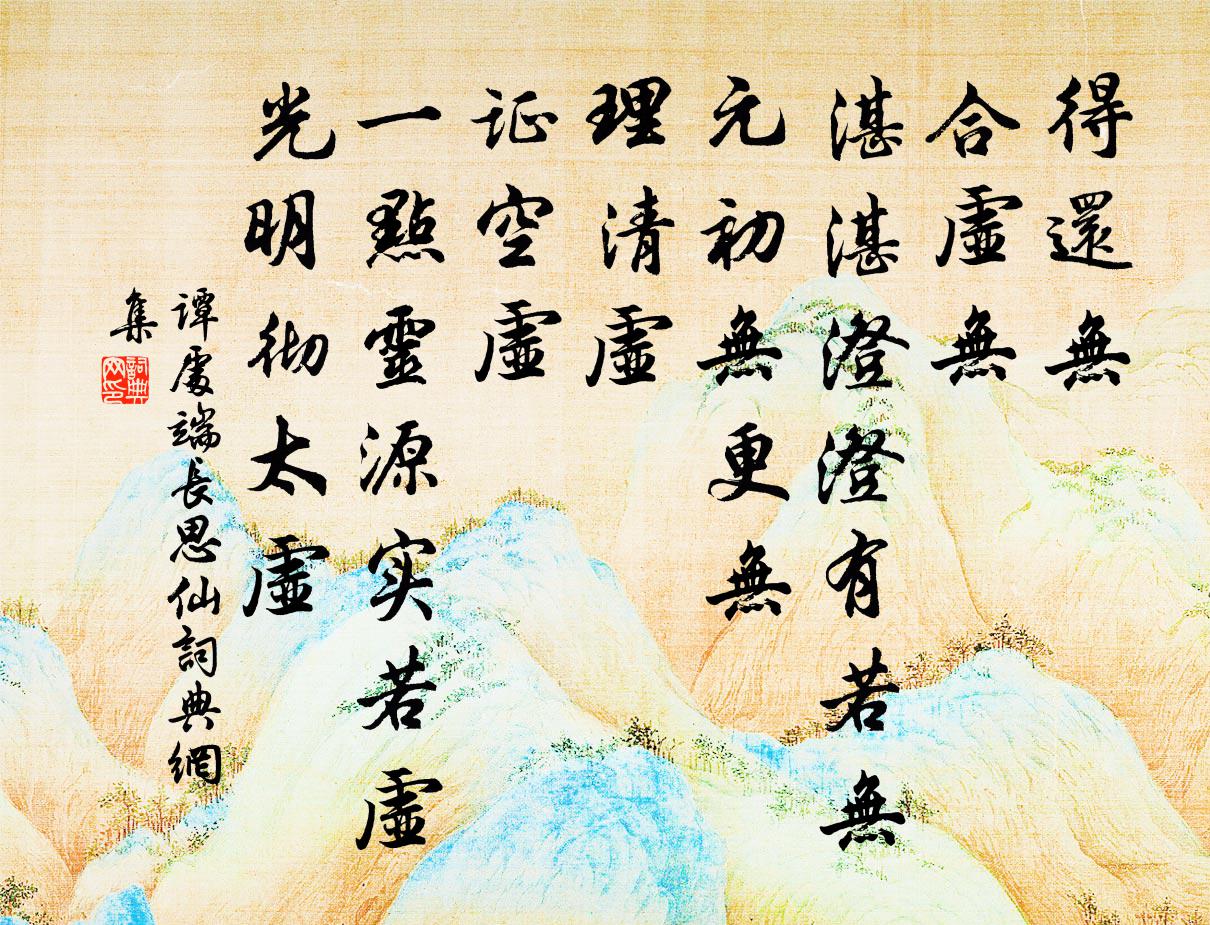 得還無
合虛無
湛湛澄澄有若無
元初無更無
理清虛
证空虛
一點靈源实若虛
光明彻太虛
谭處端長思仙詞典網
集
詞典網印